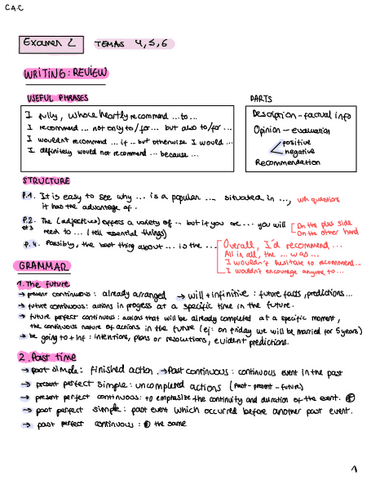 C.A.C
Examen 2 TEMAS 4,5,6
WRITING: REVIEW
USEFUL PHRASES
I fully, whose heartly recommend ... to ...
I recommend ... not only to/for ... but also to/for ...
I wouldn't recommend ... if ... but otherwise I would ...
I definitely would not recommend ... because ...
PARTS
Description - factual info
Opinion - evaluation
positive
negative
Recommendation
STRUCTURE
P.1. It is easy to see why ... is a popular ... situated in ..., wh questions
it has the advantage of.
P.2. The (adjectives) offers a variety of ... but if you are ... you will
et3 need to ... (tell essential things)
On the plus side
On the other hand
P.4. Possibly, the best thing about ... is the ...
Overall, I'd recommend ...
All in all, the ... was ...
I wouldn't hesitate to recommend ...
I wouldn't encourage anyone to ...
GRAMMAR
1. The future
→ present continuous: already arranged → will + infinitive: future facts, predictions...
→ future continuous: actions in progress at a specific time in the future.
→ future perfect continuous: actions that will be already completed at a specific moment,
the continuous nature of actions in the future (ej: on friday we will be married for 5 years)
→ be going to + inf: intentions, plans or resolutions, evident predictions.
2. Past time
→ past simple: finished action → Past continuous: continuous event in the past
→ present perfect simple: uncompleted actions (past - present - future)
→ present perfect continuous: to emphasise the continuity and duration of the event.
→ past perfect simple: past event which occurred before another past event.
→ past perfect continuous: the same
1